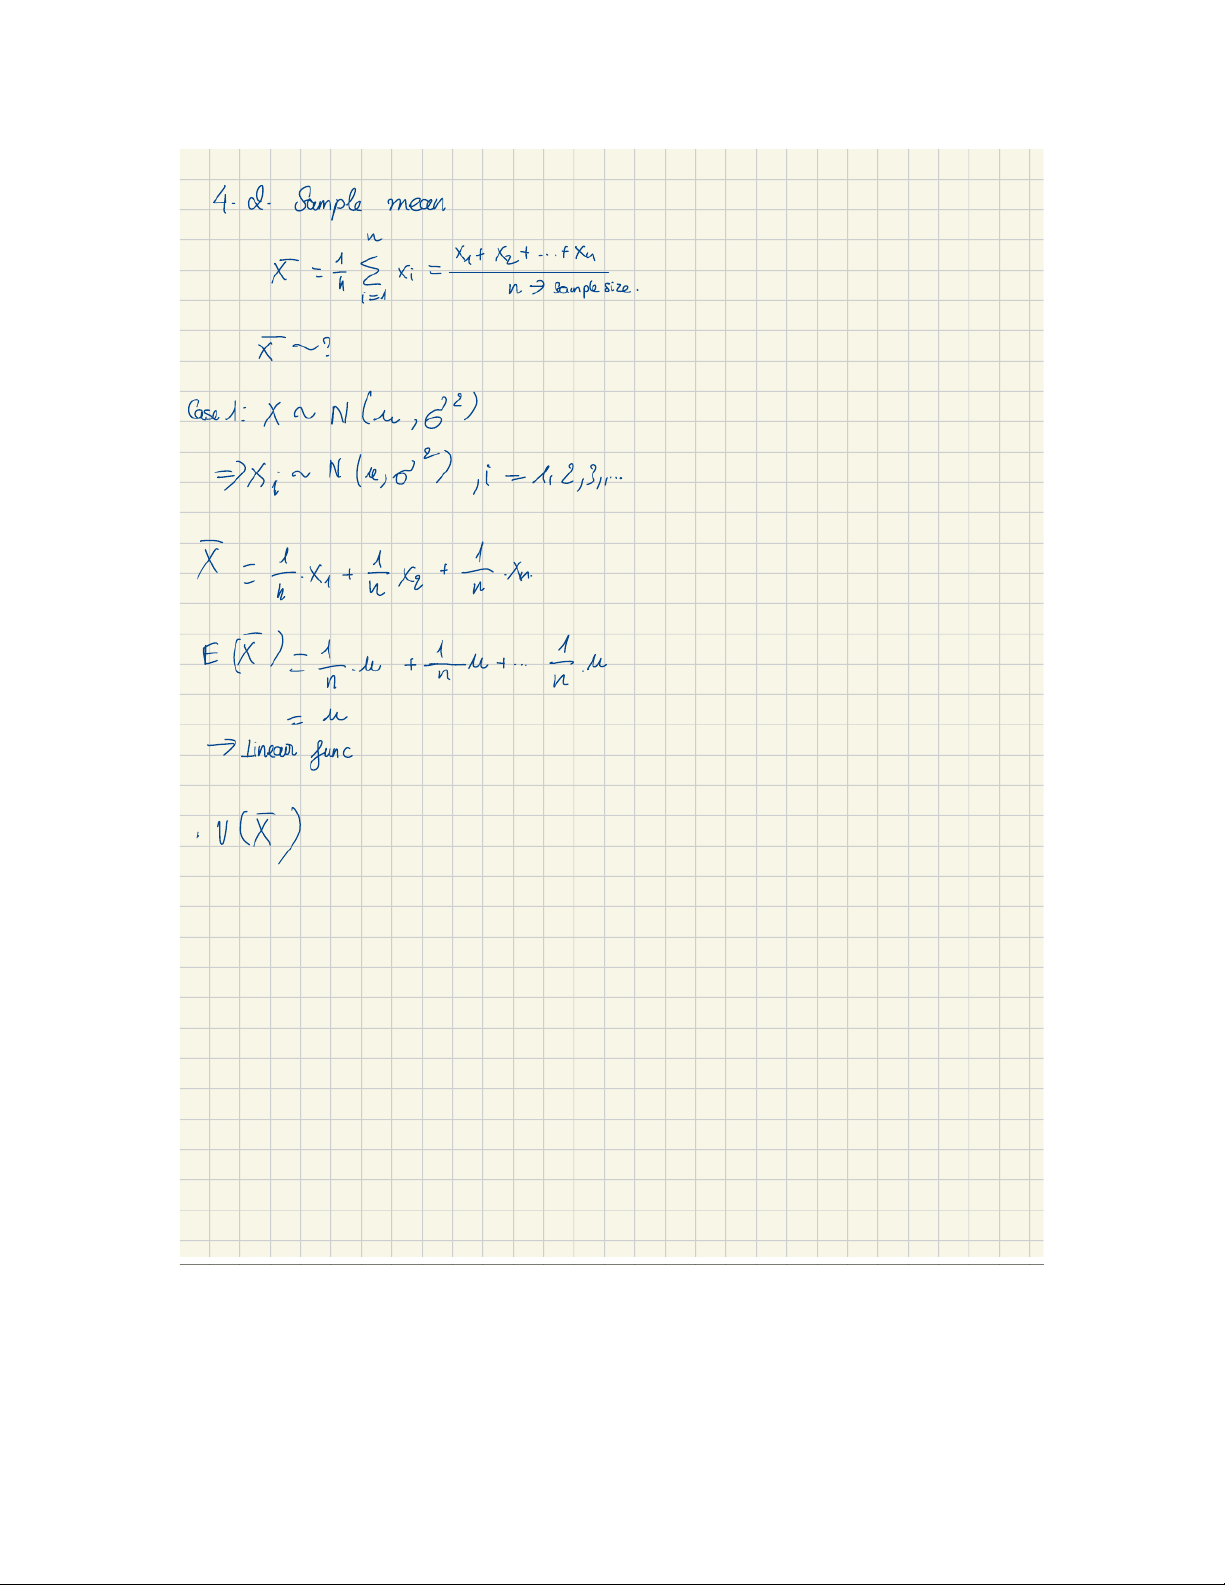 4. 2. Sample mean
X̄ = 1/n ∑_{i=1}^{n} xi = (x1 + x2 + ... + xn) / (n → sample size.)
X̄ ~ ?
Case 1: X ~ N(μ, σ²)
=> Xi ~ N(μ, σ²), i = 1, 2, 3, ...
X̄ = 1/n · X1 + 1/n X2 + 1/n · Xn.
E(X̄) = 1/n · μ + 1/n μ + ... 1/n · μ
= μ
→ Linear func
. V(X̄)